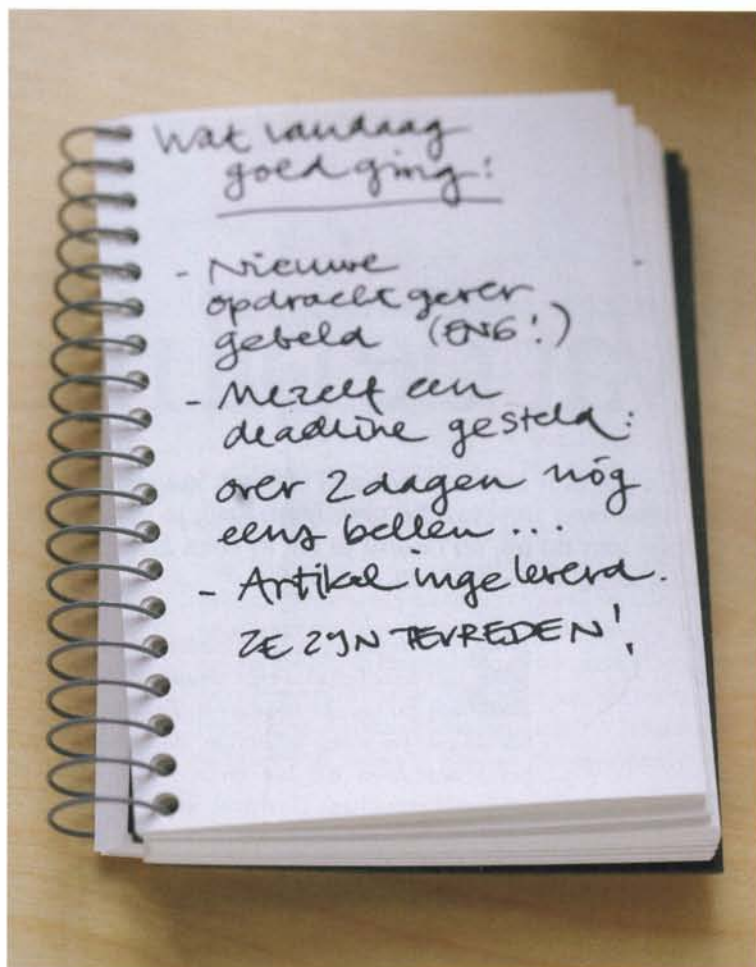 Wat vandaag
goed ging:
- Nieuwe
opdrachtgever
gebeld (ENG!)
- Mezelf een
deadline gesteld:
over 2 dagen nóg
eens bellen ...
- Artikel ingeleverd.
ZE ZIJN TEVREDEN!